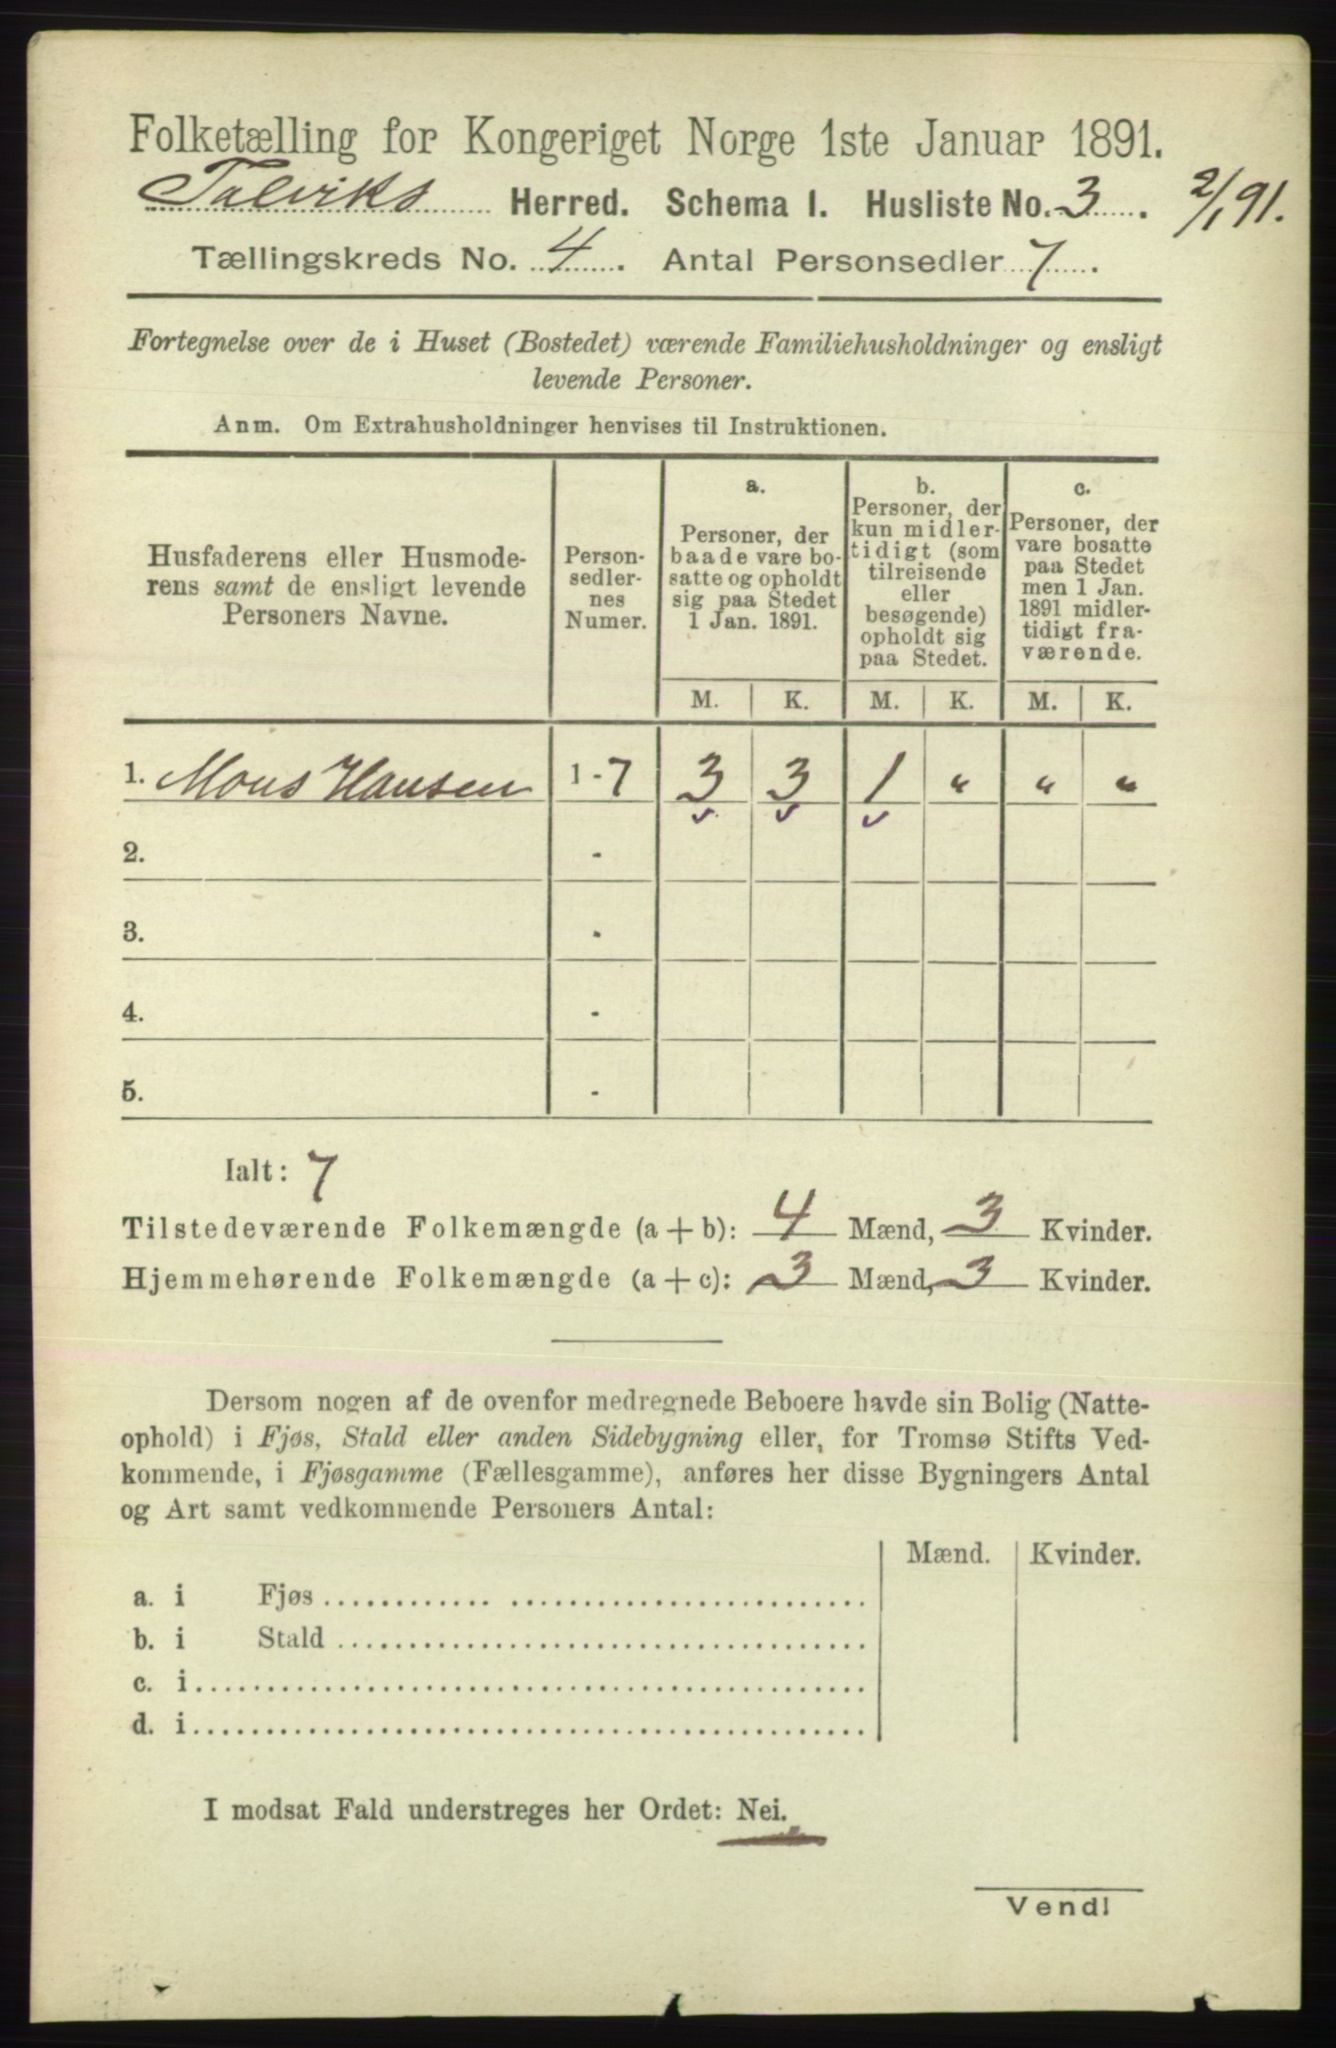 Folketælling for Kongeriget Norge 1ste Januar 1891.
Talviks Herred. Schema I. Husliste No. 3. 2/1 91.
Tællingskreds No. 4. Antal Personsedler 7.
Fortegnelse over de i Huset (Bostedet) værende Familiehusholdninger og ensligt
levende Personer.
Anm. Om Extrahusholdninger henvises til Instruktionen.
Husfaderens eller Husmode-
rens samt de ensligt levende
Personers Navne.
Person-
sedler-
nes
Numer.
a.
Personer, der
baade vare bo-
satte og opholdt
sig paa Stedet
1 Jan. 1891.
b.
Personer, der
kun midler-
tidigt (som
tilreisende
eller
besøgende)
opholdt sig
paa Stedet.
c.
Personer, der
vare bosatte
paa Stedet
men 1 Jan.
1891 midler-
tidigt fra-
værende.
M. K. M. K. M. K.
1. Mons Hansen 1-7 3 3 1 " " "
2. -
3. -
4. -
5. -
Ialt: 7
Tilstedeværende Folkemængde (a + b): 4 Mænd, 3 Kvinder.
Hjemmehørende Folkemængde (a + c): 3 Mænd, 3 Kvinder.
Dersom nogen af de ovenfor medregnede Beboere havde sin Bolig (Natte-
ophold) i Fjøs, Stald eller anden Sidebygning eller, for Tromsø Stifts Ved-
kommende, i Fjøsgamme (Fællesgamme), anføres her disse Bygningers Antal
og Art samt vedkommende Personers Antal:
Mænd. Kvinder.
a. i Fjøs
b. i Stald
c. i
d. i
I modsat Fald understreges her Ordet: Nei.
Vend!